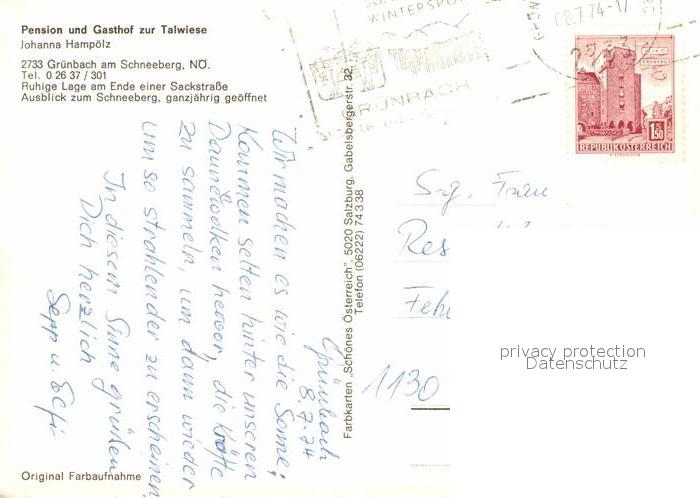 Pension und Gasthof zur Talwiese
Johanna Hampölz
2733 Grünbach am Schneeberg, NÖ.
Tel. 0 26 37 / 301
Ruhige Lage am Ende einer Sackstraße
Ausblick zum Schneeberg, ganzjährig geöffnet
WINTERSPO
GRÜNBACH
8.7.74-17
1.50
REPUBLIK ÖSTERREICH
Grünbach
8.7.74
Wir machen es wie die Sonne;
Kommen selten hinter unseren
Daunenwolken hervor, die Kräfte
zu sammeln, um dann wieder
um so strahlender zu erscheinen
In diesem Sinne grüßen
Dich herzlich
Sepp u.
Farbkarten „Schönes Österreich", 5020 Salzburg, Gabelsbergerstr. 92
Telefon (06222) 74 3 38
Sg. Frau
Res
Feh
1130
privacy protection
Datenschutz
Original Farbaufnahme